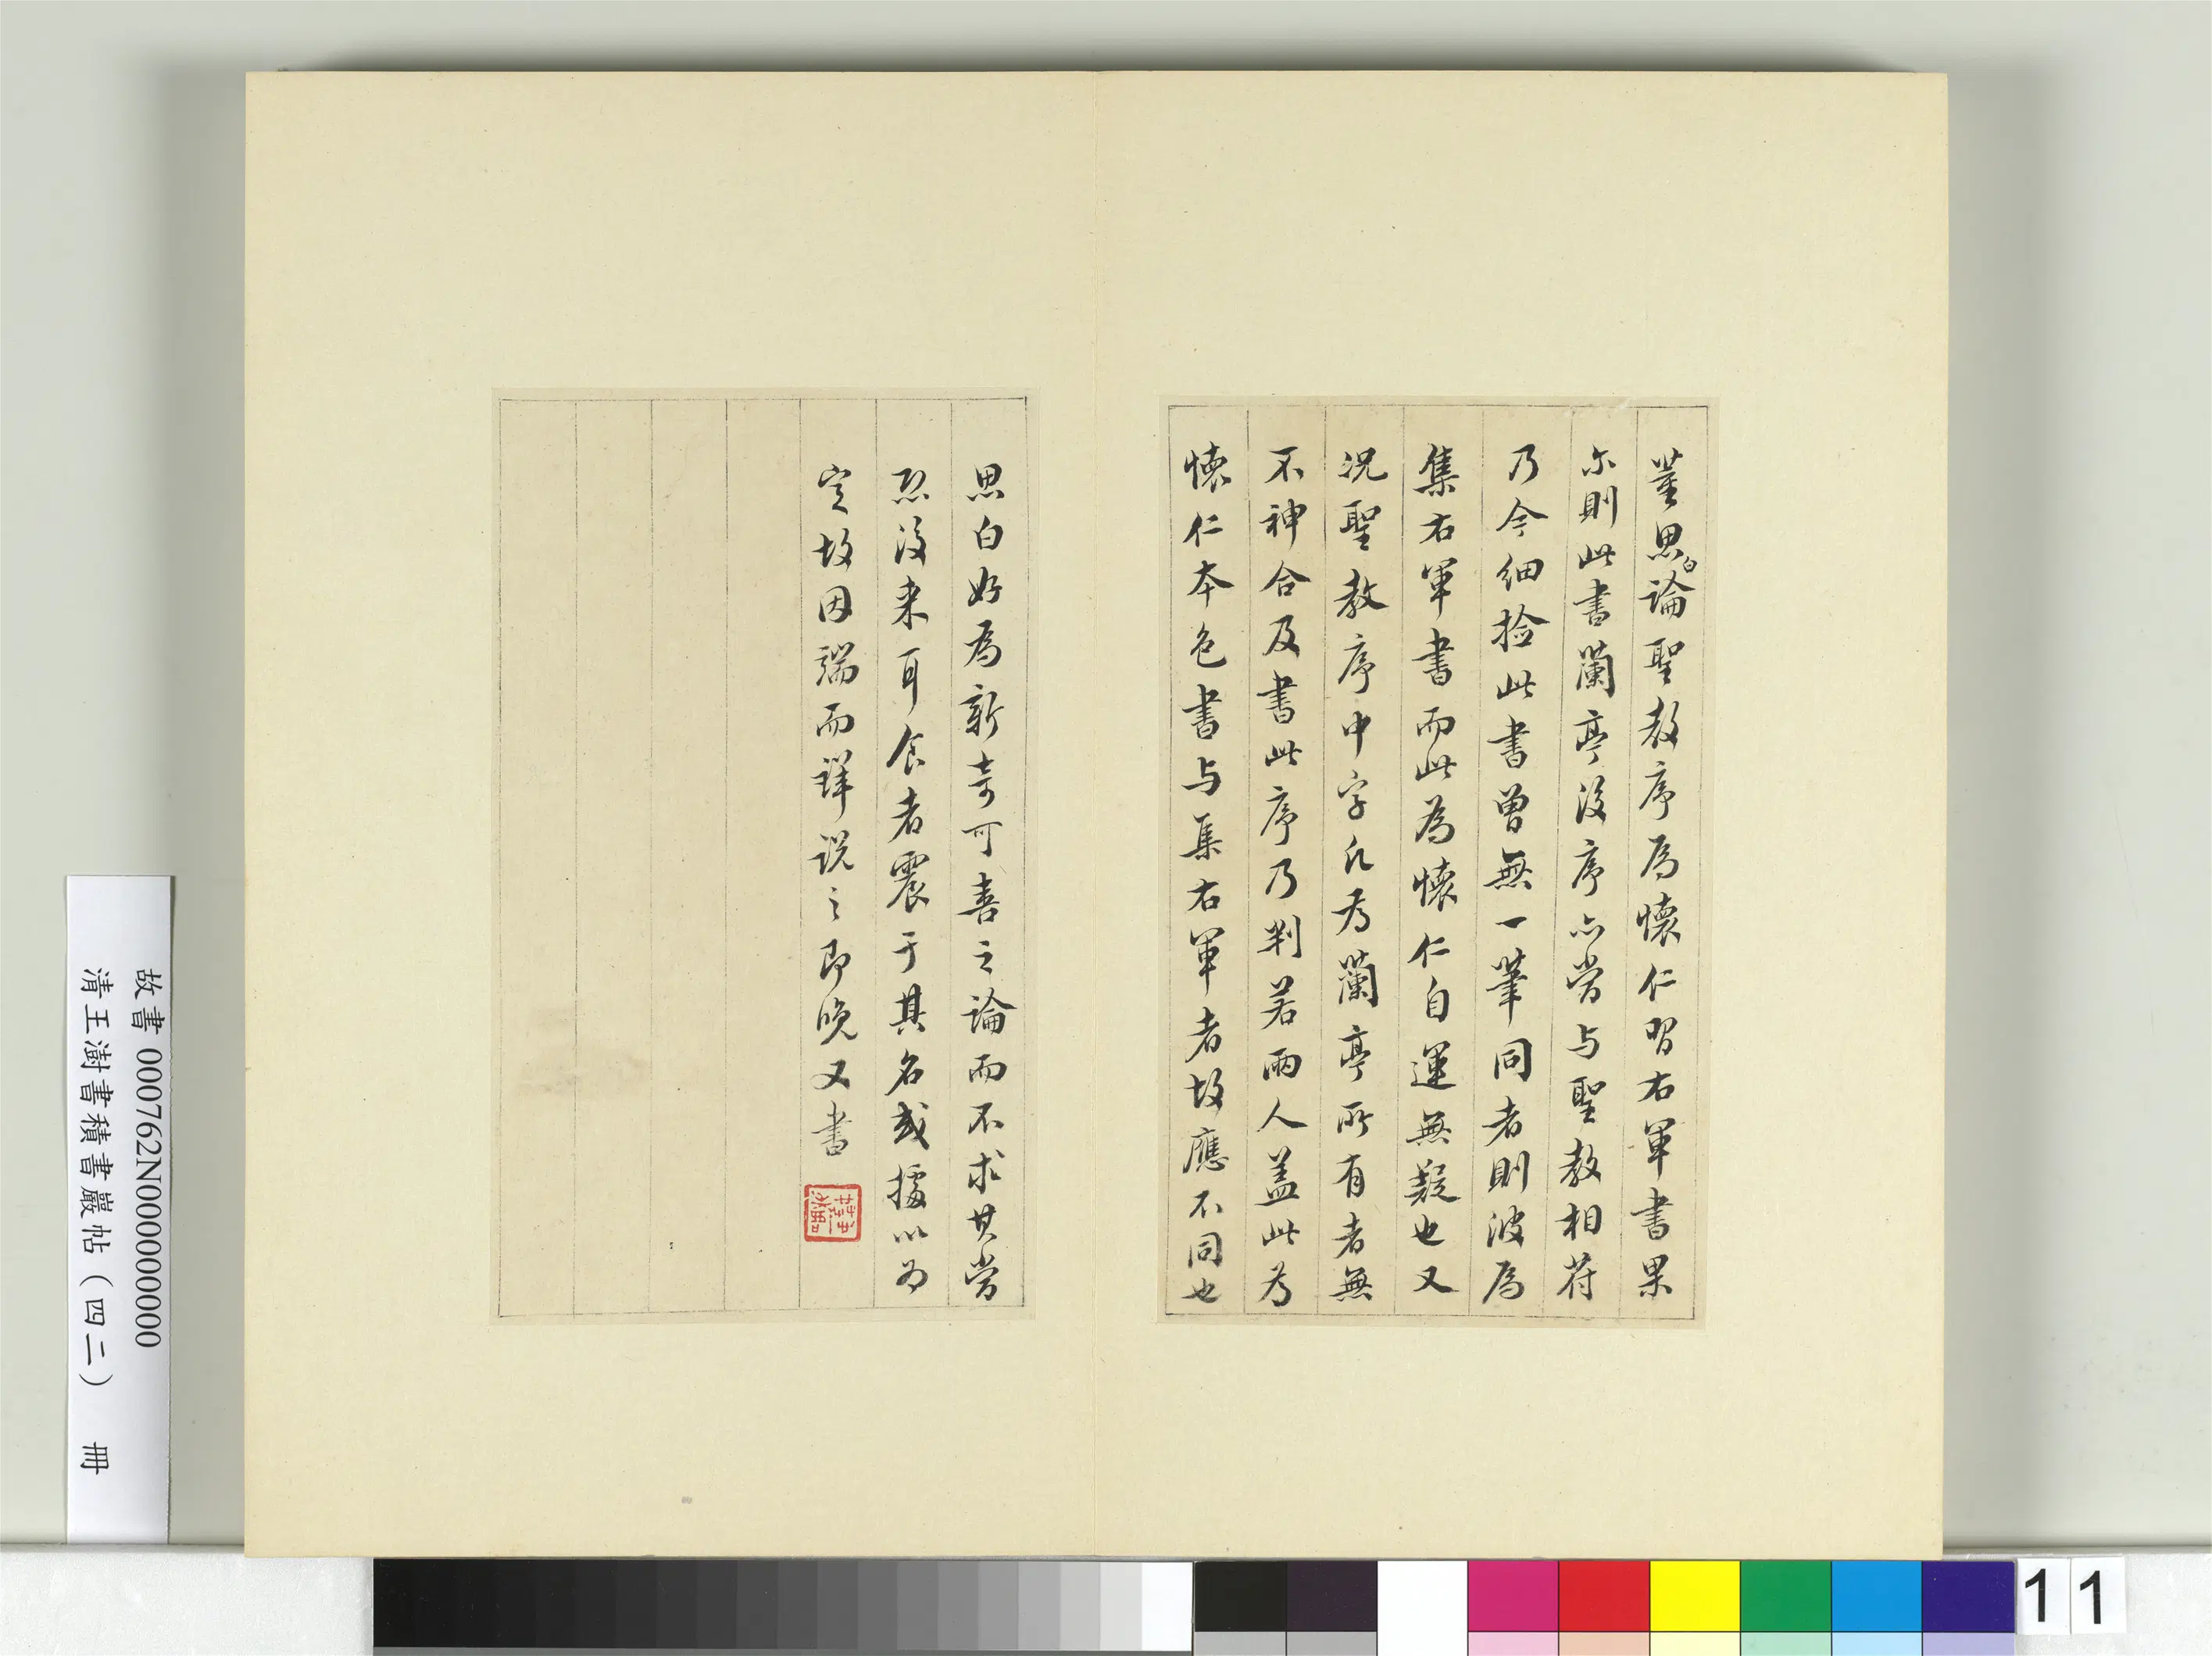 董思白論聖教序為懷仁習右軍書果
尔則此書蘭亭後序亦當与聖教相符
乃今細撿此書曾無一筆同者則彼為
集右軍書而此為懷仁自運無疑也又
況聖教序中字凡為蘭亭所有者無
不神合及書此序乃判若兩人盖此為
懷仁本色書与集右軍者故應不同也
思白好為新奇可喜之論而不求其當
恐後来耳食者震于其名或據以為
定故因端而詳說之即晚又書
故書 000762N000000000
清王澍書積書巖帖(四二) 冊
11